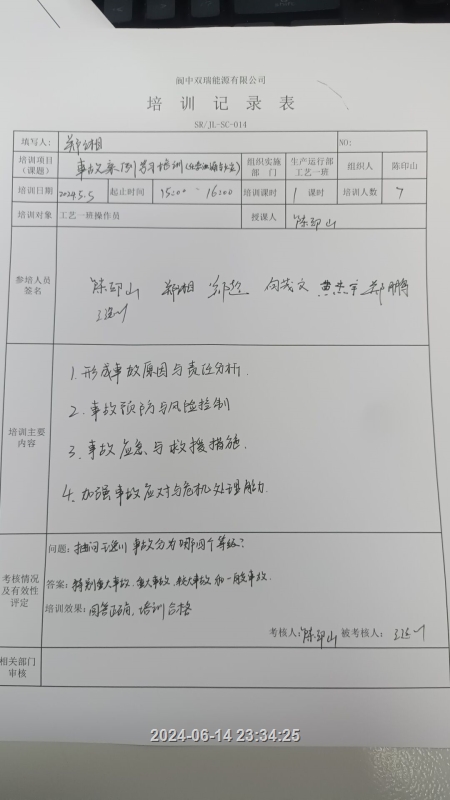 阆中双瑞能源有限公司
培训记录表
SR/JL-SC-014
填写人: 郑翊相 NO:
培训项目（课题） 事故案例学习培训 组织实施部门 生产运行部工艺一班 组织人 陈印山
培训日期 2024.5.5 起止时间 15:00 - 16:00 培训课时 1 课时 培训人数 7
培训对象 工艺一班操作员 授课人 陈印山
参培人员签名
陈印山 郑翊相 向茂文 郑鹏
培训主要内容
1. 形成事故原因与责任分析.
2. 事故预防与风险控制
3. 事故应急与救援措施.
4. 加强事故应对与危机处理能力.
考核情况及有效性评定
问题: 抽问 事故分为哪四个等级?
答案: 特别重大事故. 重大事故. 较大事故 和一般事故.
培训效果: 回答正确, 培训合格
考核人: 陈印山 被考核人:
相关部门审核
2024-06-14 23:34:25